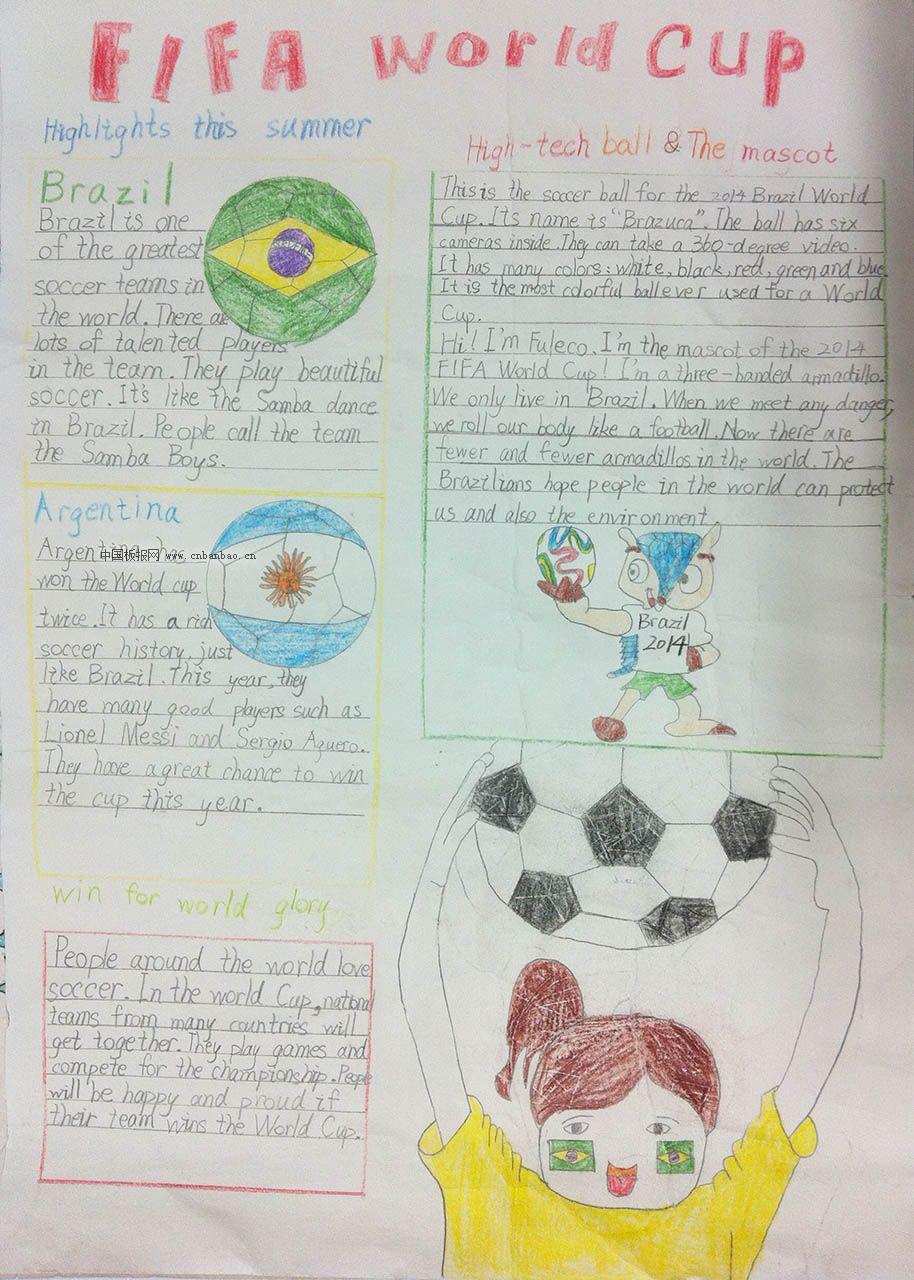 FIFA World Cup
Highlights this summer
Brazil
Brazil is one
of the greatest
soccer teams in
the world. There are
lots of talented players
in the team. They play beautiful
soccer. It's like the Samba dance
in Brazil. People call the team
the Samba Boys.
Argentina
Argentina has
中国板报网 www.cnbanbao.cn
won the World cup
twice. It has a rich
soccer history, just
like Brazil. This year, they
have many good players such as
Lionel Messi and Sergio Aguero.
They have a great chance to win
the cup this year.
win for world glory
People around the world love
soccer. In the world Cup, national
teams from many countries will
get together. They play games and
compete for the championship. People
will be happy and proud if
their team wins the World Cup.
High-tech ball & The mascot
This is the soccer ball for the 2014 Brazil World
Cup. Its name is "Brazuca". The ball has six
cameras inside. They can take a 360-degree video.
It has many colors: white, black, red, green and blue.
It is the most colorful ball ever used for a World
Cup.
Hi! I'm Fuleco. I'm the mascot of the 2014
FIFA World Cup! I'm a three-banded armadillo.
We only live in Brazil. When we meet any danger,
we roll our body like a football. Now there are
fewer and fewer armadillos in the world. The
Brazilians hope people in the world can protect
us and also the environment.
Brazil
2014